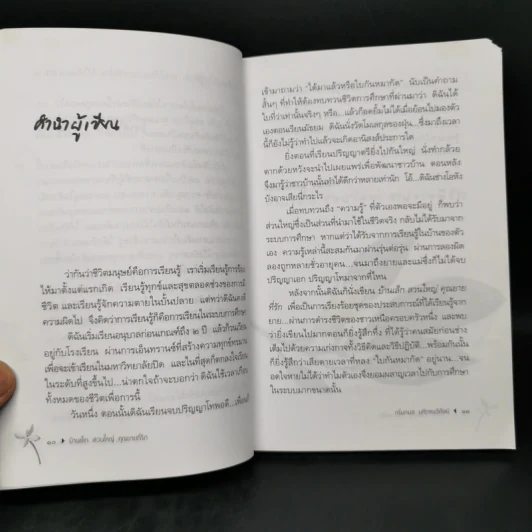 คำนำผู้เขียน
ว่ากันว่าชีวิตมนุษย์คือการเรียนรู้ เราเริ่มเรียนรู้การร้อง
ให้มาตั้งแต่แรกเกิด เรียนรู้ทุกข์และสุขตลอดช่วงของการมี
ชีวิต และเรียนรู้จักความตายในบั้นปลาย แต่ทว่าดิฉันคง
ความผิดไป จึงคิดว่าการเรียนรู้คือการเรียนในระบบการศึกษา
ดิฉันเริ่มเรียนอนุบาลก่อนเกณฑ์ถึง ๒ ปี แล้วก็วนเวียน
อยู่กับโรงเรียน ผ่านการเอ็นทรานซ์ที่สร้างความทุกข์ทรมาน
เพื่อจะเข้าเรียนในมหาวิทยาลัยปิด และในที่สุดก็ตกลงใจเรียน
ในระดับที่สูงขึ้นไป...น่าตกใจถ้าจะบอกว่า ดิฉันใช้เวลาเกือบ
ทั้งหมดของชีวิตเพื่อการนี้
วันหนึ่ง ตอนนั้นดิฉันเรียนจบปริญญาโทพอดี...เพื่อน
๑๐ บ้านเล็ก สวนใหญ่ คุณยายที่รัก
เข้ามาถามว่า "ได้มาแล้วหรือใบกันหมากัด" นับเป็นคำถาม
สั้นๆ ที่ทำให้ต้องทบทวนชีวิตการศึกษาที่ผ่านมาว่า ดิฉันได้
ใบที่ว่าเท่านั้นจริงๆ หรือ...แล้วก็อดยิ้มไม่ได้เมื่อย้อนไปมองตัว
เองตอนเรียนมัธยม ดิฉันนั่งวัดโมเลกุลของฝุ่น...ซึ่งมาถึงเวลา
นี้ก็ยังไม่รู้ว่าทำไปแล้วจะเกิดอานิสงส์ประการใด
ยิ่งตอนที่เรียนปริญญาตรียิ่งไปกันใหญ่ นั่งทำกล้วย
ตากด้วยหวังจะนำไปเผยแพร่เพื่อพัฒนาชาวบ้าน ตอนหลัง
จึงมารู้ว่าชาวบ้านนั้นทำได้ดีกว่าหลายเท่านัก โอ้...ดิฉันช่างโอหัง
บังอาจเสียนี่กระไร
เมื่อทบทวนถึง "ความรู้" ที่ตัวเองพอจะมีอยู่ ก็พบว่า
ส่วนใหญ่ซึ่งเป็นส่วนที่นำมาใช้ในชีวิตจริง กลับไม่ได้รับมาจาก
ระบบการศึกษา หากแต่ว่าได้รับจากการเรียนรู้ในบ้านของตัว
เอง ความรู้เหล่านี้สะสมกันมาผ่านรุ่นต่อรุ่น ผ่านการลองผิด
ลองถูกหลายชั่วอายุคน...จนมาถึงยายและแม่ซึ่งก็ไม่ได้จบ
ปริญญาเอก ปริญญาโทมาจากที่ไหน
หลังจากนั้นดิฉันก็นั่งเขียน บ้านเล็ก สวนใหญ่ คุณยาย
ที่รัก เพื่อเป็นการเรียงร้อยชุดของประสบการณ์ที่ได้เรียนรู้จาก
ยาย...ผ่านการดำรงชีวิตของชาวเหนือครอบครัวหนึ่ง และพบ
ว่ายิ่งเขียนไปมากตอนก็ยิ่งรู้สึกทึ่ง ที่ได้รู้ว่าคนสมัยก่อนช่าง
เต็มไปด้วยความเก่งกาจทั้งวิธีคิดและวิธีปฏิบัติ...พร้อมกันนั้น
ก็ยิ่งรู้สึกว่าเสียดายเวลาที่หลง "ใบกันหมากัด" อยู่นาน...จน
อดใจหายไม่ได้ว่าทำไมตัวเองจึงยอมผลาญเวลาไปกับการศึกษา
ในระบบมากขนาดนั้น
๑๑